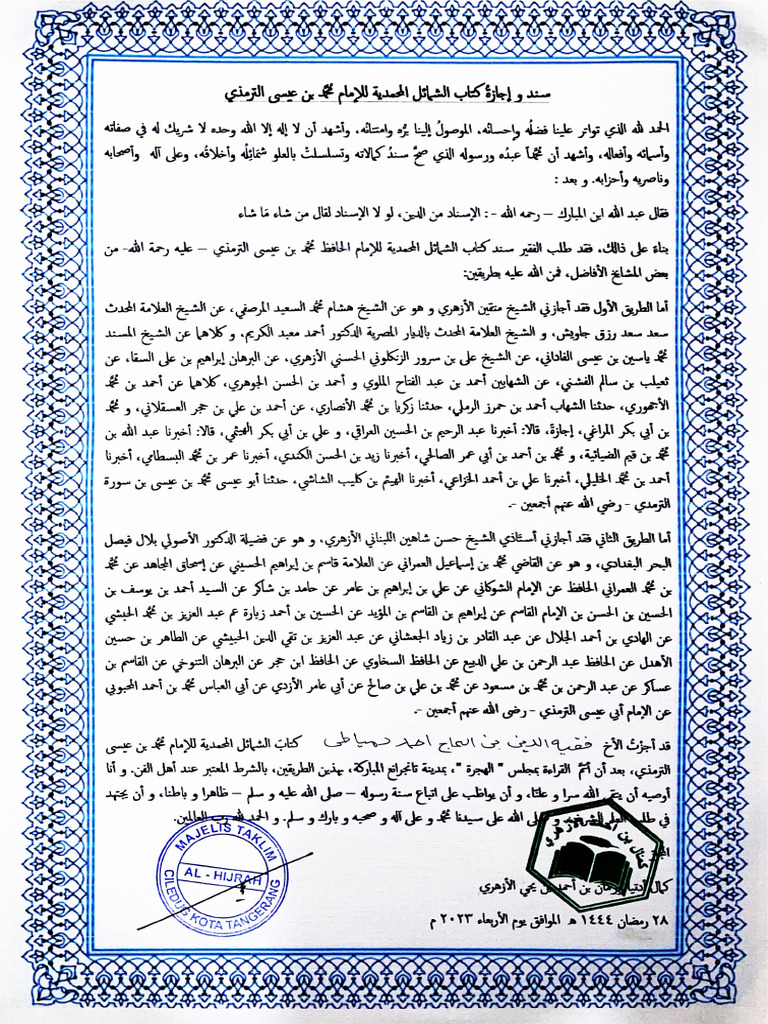 سند و إجازةُ كتاب الشمائل المحمدية للإمام محمّد بن عيسى الترمذي
الحمد لله الذي تواتر علينا فضلُه وإحسانُه، الموصولُ إلينا بِرُّه وامتنانُه، وأشهد أن لا إله إلا الله وحده لا شريك له في صفاته
وأسمائه وأفعاله، وأشهد أن محمّداً عبدُه ورسوله الذي صحّ سندُ كمالاته وتسلسلتْ بالعلو شمَائِلُه وأخلاقُه، وعلى آله وأصحابه
وناصريه وأحزابه. و بعد :
فقال عبد الله ابن المبارك – رحمه الله - : الإسناد من الدين، لو لا الإسناد لقال من شاء مَا شاء
بناءً على ذالك، فقد طلب الفقير سند كتاب الشمائل المحمدية للإمام الحافظ محمّد بن عيسى الترمذي – عليه رحمة الله- من
بعض المشايخ الأفاضل، فمن الله عليه بطريقين:
أما الطريق الأول فقد أجازني الشيخ متقين الأزهري و هو عن الشيخ هشام محمّد السعيد المرصفي، عن الشيخ العلامة المحدث
سعد سعد رزق جاويش، و الشيخ العلامة المحدث بالديار المصرية الدكتور أحمد معبد الكريم، و كلاهما عن الشيخ المسند
محمّد ياسين بن عيسى الفاداني، عن الشيخ على بن سرور الزنكلوني الحسني الأزهري، عن البرهان إبراهيم بن على السقاء، عن
ثعيلب بن سالم الفشني، عن الشهابين أحمد بن عبد الفتاح الملوي و أحمد بن الحسن الجوهري، كلاهما عن أحمد بن محمّد
الأجهوري، حدثنا الشهاب أحمد بن حمرز الرملي، حدثنا زكريا بن محمّد الأنصاري، عن أحمد بن علي بن حجر العسقلاني، و محمّد
بن أبي بكر المراغي، إجازةً، قالا: أخبرنا عبد الرحيم بن الحسين العراقي، و علي بن أبي بكر الهيثمي، قالا: أخبرنا عبد الله بن
محمّد بن قيم الضيائية، و محمّد بن أحمد بن أبي عمر الصالحي، أخبرنا زيد بن الحسن الكندي، أخبرنا عمر بن محمّد البسطامي، أخبرنا
أحمد بن محمّد الخليلي، أخبرنا علي بن أحمد الخزاعي، أخبرنا الهيثم بن كليب الشاشي، حدثنا أبو عيسى محمّد بن عيسى بن سورة
الترمدي - رضى الله عنهم أجمعين -.
أما الطريق الثاني فقد أجازني أستاذي الشيخ حسن شاهين اللبناني الأزهري، و هو عن فضيلة الدكتور الأصولي بلال فيصل
البحر البغدادي، و هو عن القاضي محمّد بن إسماعيل العمراني عن العلامة قاسم بن إبراهيم الحسيني عن إسحاق المجاهد عن محمّد
بن محمّد العمراني الحافظ عن الإمام الشوكاني عن علي بن إبراهيم بن عامر عن حامد بن شاكر عن السيد أحمد بن يوسف بن
الحسين بن الحسن بن الإمام القاسم عن إبراهيم بن القاسم بن المؤيد عن الحسين بن أحمد زبارة عم عبد العزيز بن محمّد الحبشي
عن الهادي بن أحمد الجلال عن عبد القادر بن زياد الجعشاني عن عبد العزيز بن تقي الدين الحبيشي عن الطاهر بن حسين
الأهدل عن الحافظ عبد الرحمن بن علي الديبع عن الحافظ السخاوي عن الحافظ ابن حجر عن البرهان التنوخي عن القاسم بن
عساكر عن عبد الرحمن بن محمّد بن مسعود عن محمّد بن علي بن صالح عن أبي عامر الأزدي عن أبي العباس محمّد بن أحمد المحبوبي
عن الإمام أبي عيسى الترمذي - رضى الله عنهم أجمعين -.
قد أجزتُ الأخ فقيه الدين بن الحاج احمد دمياطي كتابَ الشمائل المحمدية للإمام محمّد بن عيسى
الترمذي، بعد أن أتمّ القراءة بمجلس " الهجرة "، بمدينة تانجرانج المباركة، بهذين الطريقين، بالشرط المعتبر عند أهل الفن. و أنا
أوصيه أن يتقي الله سرا و علنا، و أن يواظب على اتباع سنة رسوله – صلى الله عليه و سلم – ظاهرا و باطنا، و أن يجتهد
في طلب العلم الشريف. و صلى الله على سيدنا محمّد و على آله و صحبه و بارك و سلم. و الحمد لله رب العالمين.
المجيز
MAJELIS TAKLIM
AL - HIJRAH
CILEDUG KOTA TANGERANG
كمال بن أحمد الأزهري
كمال بن أحمد بن يحي الأزهري
٢٨ رمضان ١٤٤٤ هـ الموافق يوم الأربعاء ٢٠٢٣ م